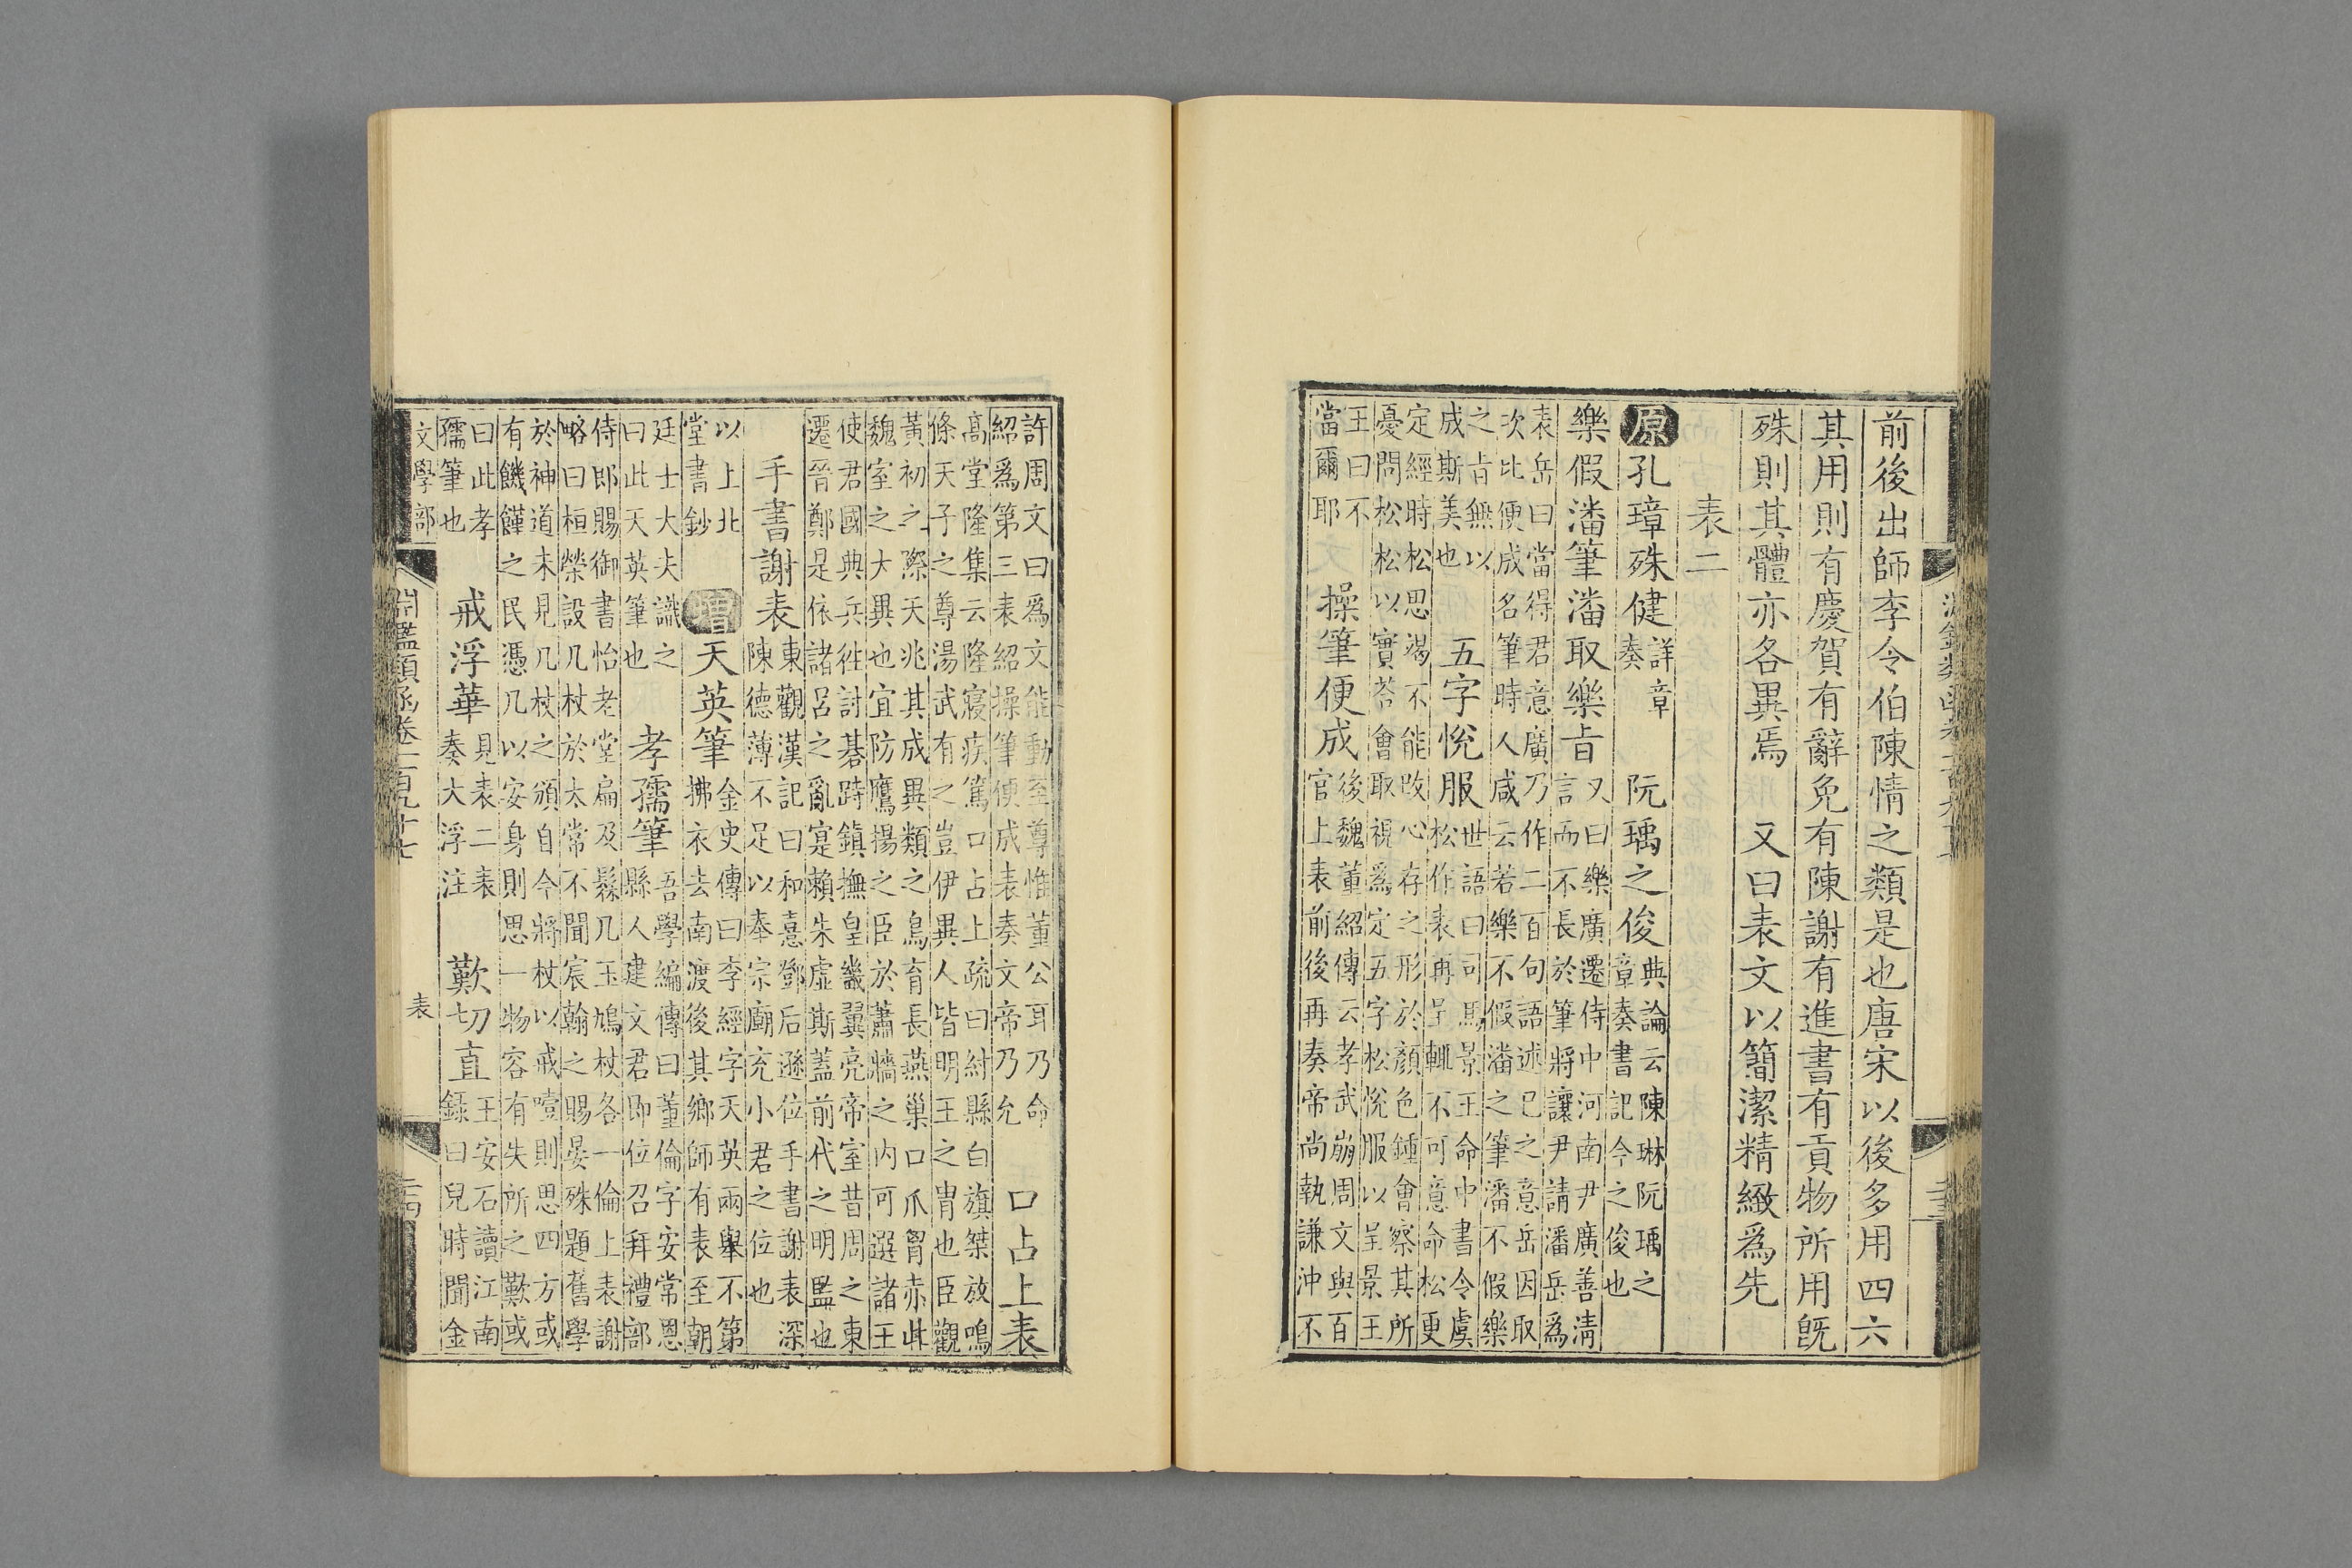 前後出師李令伯陳情之類是也唐宋以後多用四六
其用則有慶賀有辭免有陳謝有進書有貢物所用旣
殊則其體亦各異焉　又曰表文以簡潔精緻爲先
表二
原孔璋殊健詳章奏　阮瑀之俊典論云陳琳阮瑀之章奏書記今之俊也
樂假潘筆潘取樂旨又曰樂廣遷侍中河南尹廣善淸言而不長於筆將讓尹請潘岳爲
表岳曰當得君意廣乃作二百句語述已之意岳因取
次比便成名筆時人咸云若樂不假潘之筆潘不假樂
之旨無以成斯美也　五字悅服世語曰司馬景王命中書令虞松作表再呈輒不可意命松更
定經時松思竭不能改心存之形於顏色鍾會察其所
憂問松松以實荅會取視爲定五字松悅服以呈景王
王曰不當爾耶　操筆便成後魏董紹傳云孝武崩周文與百官上表前後再奏帝尚執謙沖不
許周文曰爲文能動至尊惟董公耳乃命
紹爲第三表紹操筆便成表奏文帝乃允　口占上表
高堂隆集云隆寢疾篤口占上疏曰紂縣白旗桀放鳴
條天子之尊湯武有之豈伊異人皆明王之胄也臣觀
黃初之際天兆其成異類之鳥育長燕巢口爪胷赤此
魏室之大異也宜防鷹揚之臣於蕭牆之内可選諸王
使君國典兵徃討棊跱鎮撫皇畿翼亮帝室昔周之東
遷晉鄭是依諸呂之亂寔賴朱虛斯蓋前代之明監也
手書謝表東觀漢記曰和憙鄧后遜位手書謝表深陳德薄不足以奉宗廟充小君之位也
以上北堂書鈔　增天英筆金史傳曰李經字天英兩舉不第拂衣去南渡後其鄉師有表至朝
廷士大夫識之曰此天英筆也　孝孺筆吾學編傳曰董倫字安常恩縣人建文君即位召拜禮部
侍郎賜御書怡老堂扁及髹几玉鳩杖各一倫上表謝
略曰桓榮設几杖於太常不聞宸翰之賜晏殊題舊學
於神道未見几杖之頒自今將杖以戒噎則思四方或
有饑饉之民憑几以安身則思一物容有失所之歎或
曰此孝孺筆也　戒浮華見表二表奏大浮注　歎切直王安石讀江南錄曰兒時聞金
文學部
淵鑑類函卷一百九十七
表